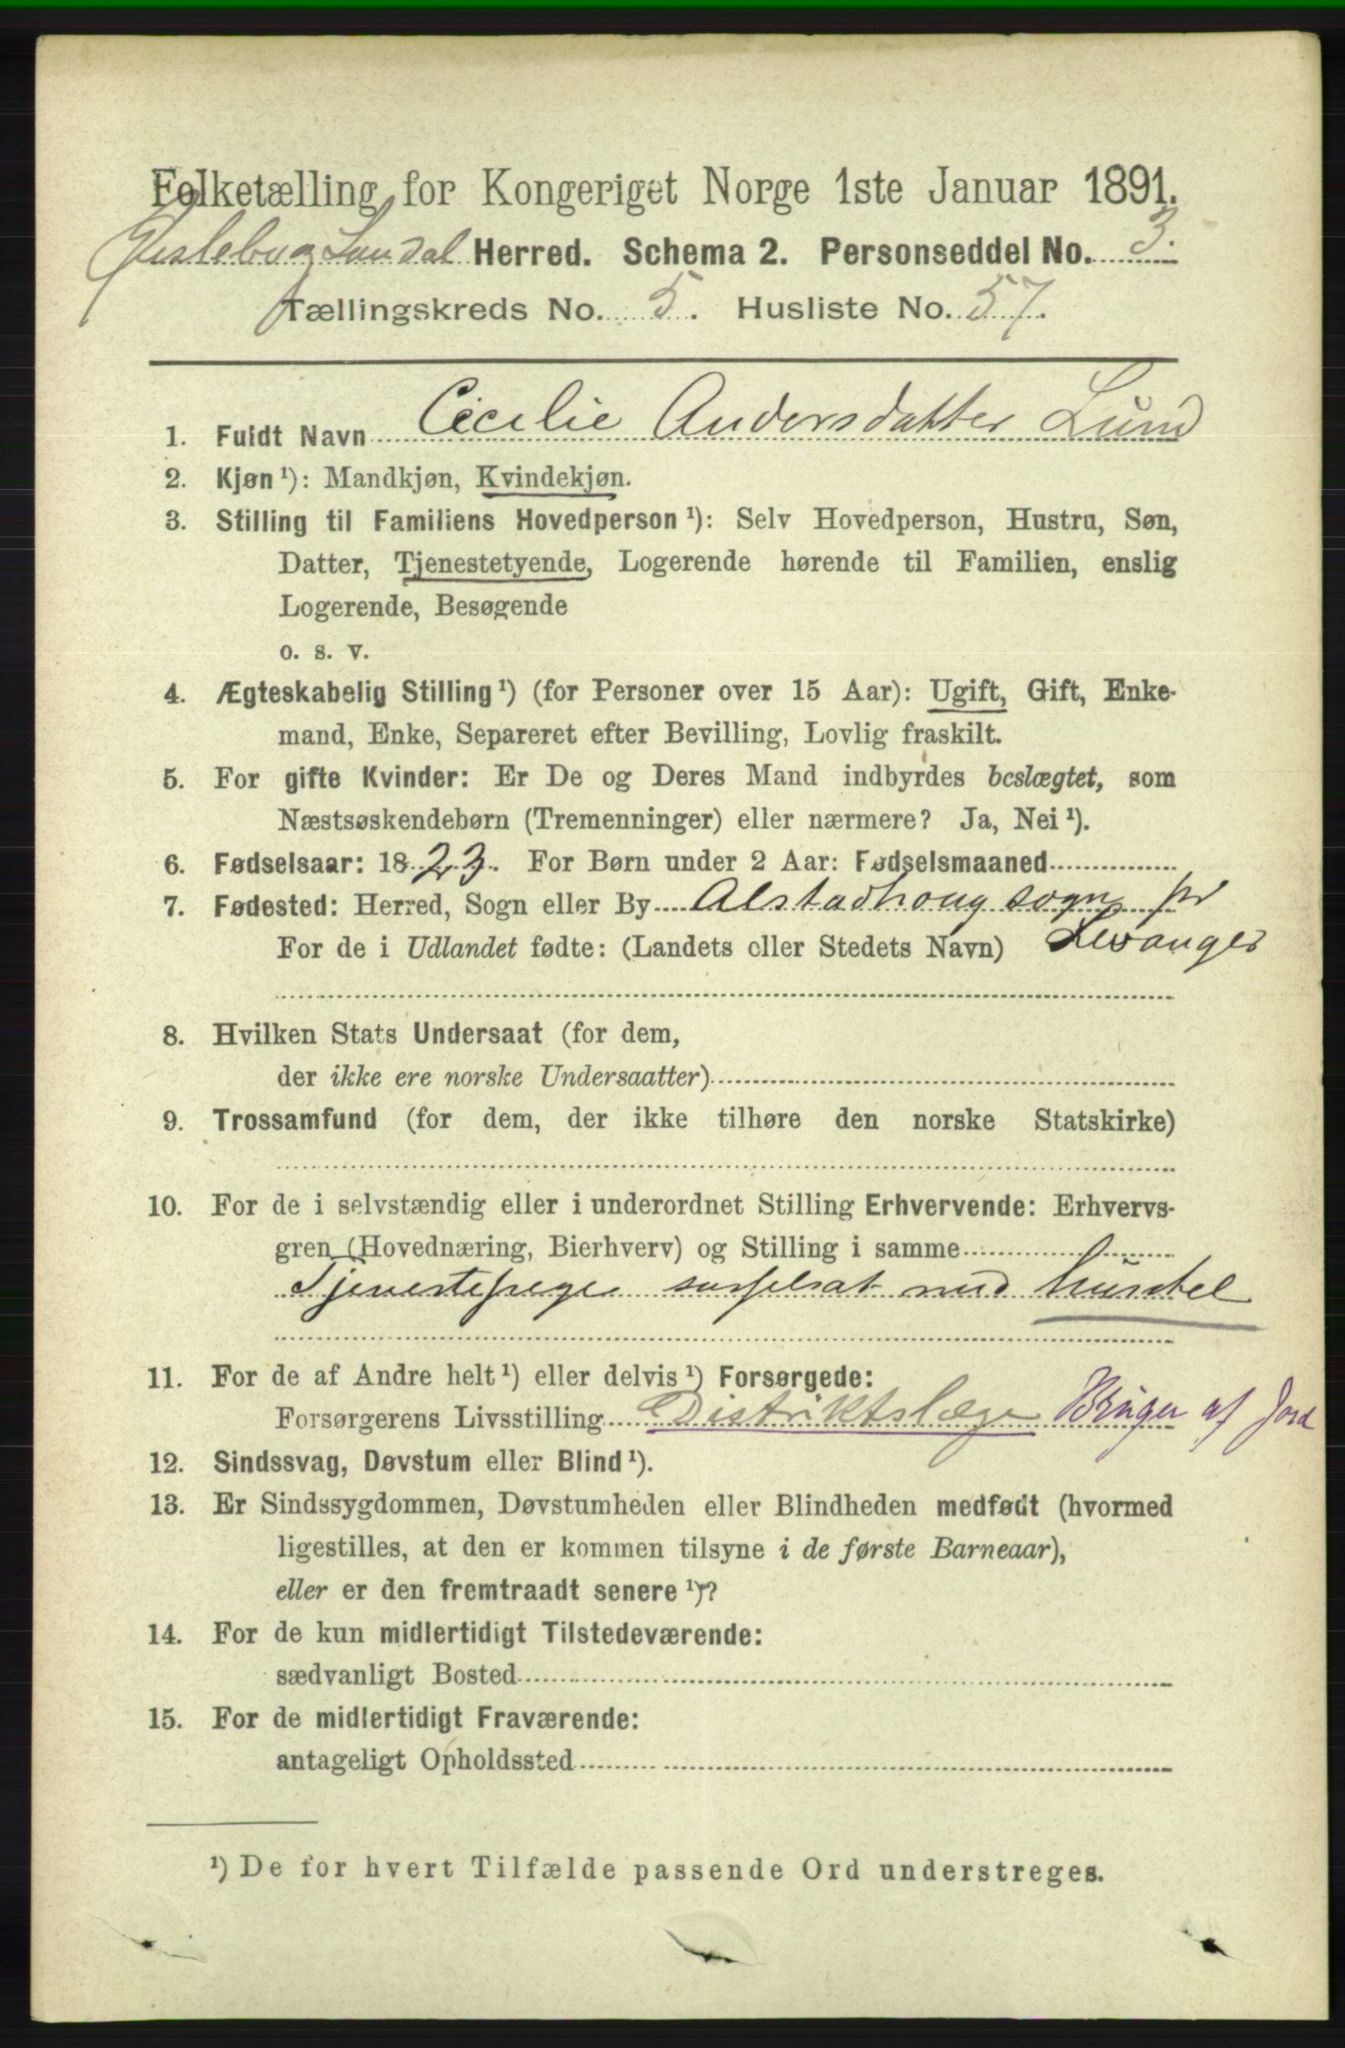 Folketælling for Kongeriget Norge 1ste Januar 1891.
Herred. Schema 2. Personseddel No. 3.
Tællingskreds No. 5. Husliste No. 57.
1. Fuldt Navn Cecilie Andersdatter Lund
2. Kjøn ¹): Mandkjøn, Kvindekjøn.
3. Stilling til Familiens Hovedperson ¹): Selv Hovedperson, Hustru, Søn,
Datter, Tjenestetyende, Logerende hørende til Familien, enslig
Logerende, Besøgende
o. s. v.
4. Ægteskabelig Stilling ¹) (for Personer over 15 Aar): Ugift, Gift, Enke-
mand, Enke, Separeret efter Bevilling, Lovlig fraskilt.
5. For gifte Kvinder: Er De og Deres Mand indbyrdes beslægtet, som
Næstsøskendebørn (Tremenninger) eller nærmere? Ja, Nei ¹).
6. Fødselsaar: 1823. For Børn under 2 Aar: Fødselsmaaned
7. Fødested: Herred, Sogn eller By Alstadhoug sogn pr
For de i Udlandet fødte: (Landets eller Stedets Navn) Levanger
8. Hvilken Stats Undersaat (for dem,
der ikke ere norske Undersaatter)
9. Trossamfund (for dem, der ikke tilhøre den norske Statskirke)
10. For de i selvstændig eller i underordnet Stilling Erhvervende: Erhvervs-
gren (Hovednæring, Bierhverv) og Stilling i samme
Tjenestepige sysselsat med husstel
11. For de af Andre helt ¹) eller delvis ¹) Forsørgede:
Forsørgerens Livsstilling Distriktslæge Bruger af Jord
12. Sindssvag, Døvstum eller Blind ¹).
13. Er Sindssygdommen, Døvstumheden eller Blindheden medfødt (hvormed
ligestilles, at den er kommen tilsyne i de første Barneaar),
eller er den fremtraadt senere ¹)?
14. For de kun midlertidigt Tilstedeværende:
sædvanligt Bosted
15. For de midlertidigt Fraværende:
antageligt Opholdssted
¹) De for hvert Tilfælde passende Ord understreges.